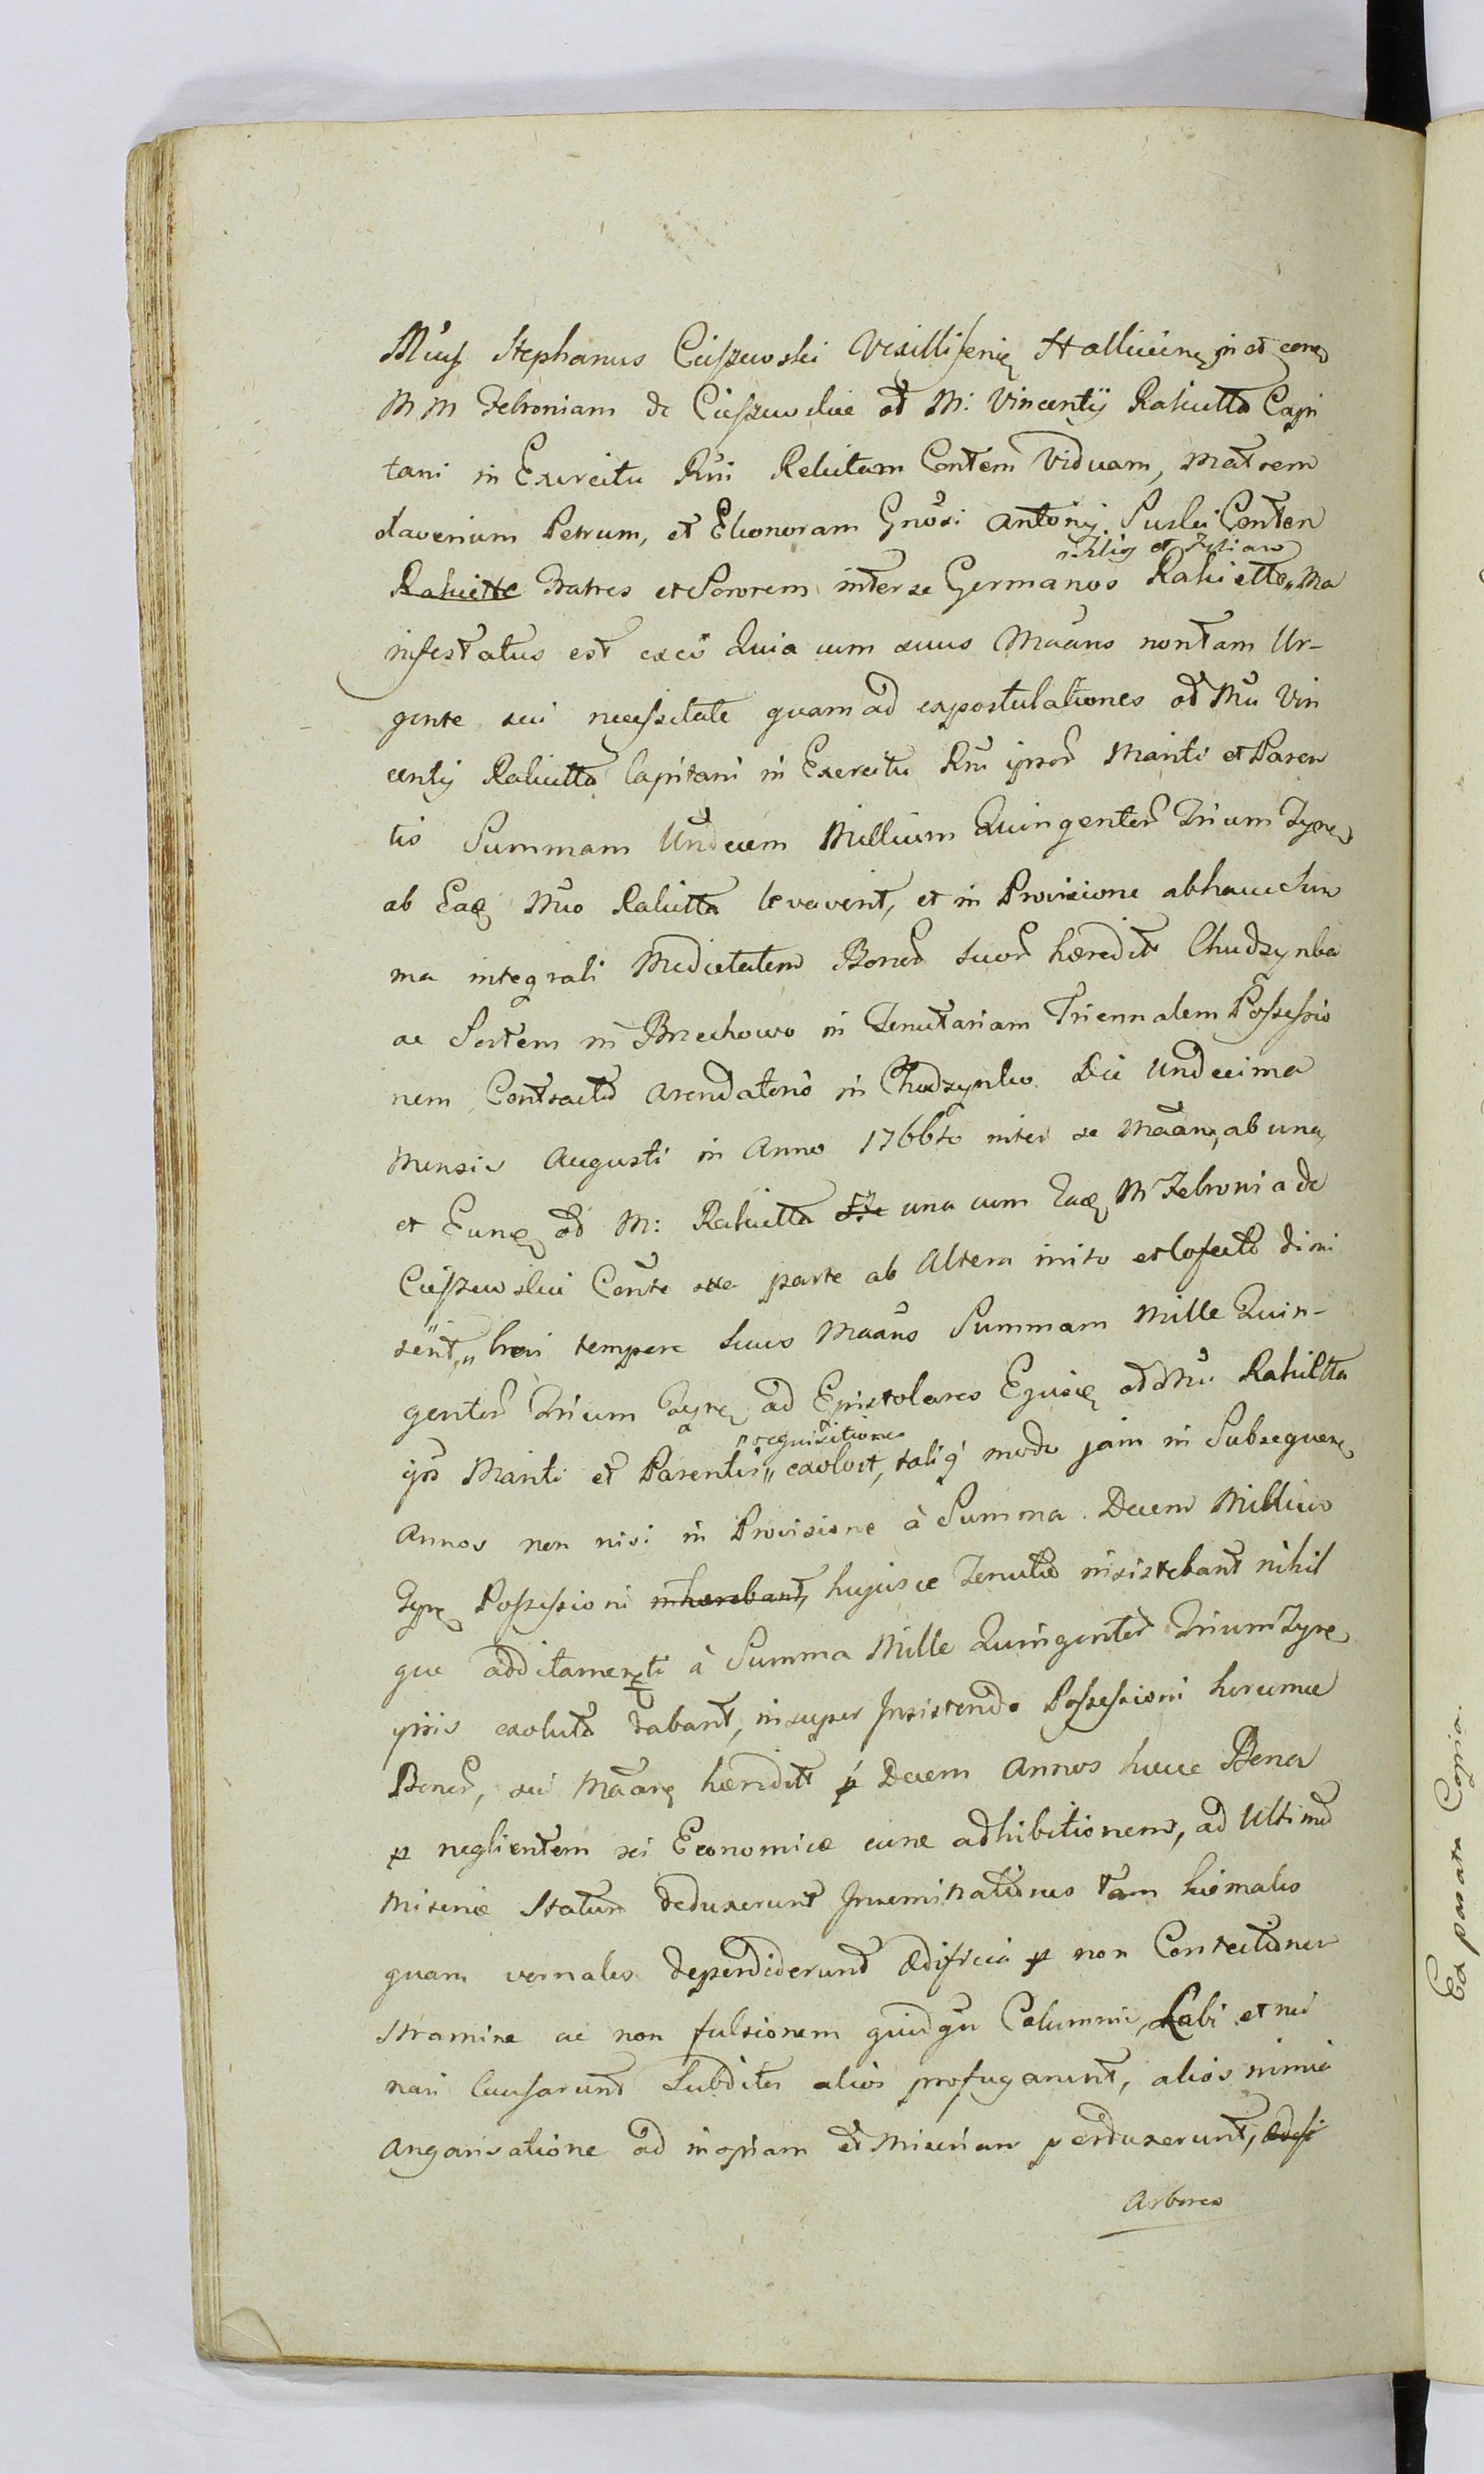 Mcus Stephanus Cieszewski Vexilliferius Hallicien in et cones
M M Febroniam de Cieszewskie od M: Vincentÿ Rahietta Capi
tani in Exercitu Rni Relictam Contem Viduam, Matrem
daverium Petrum, et Eleonoram Gnosi Antonij Suski Conten
Rahiette Fratres et Sororem inter se Germanos Rahiette "Ma
"Filios et Filiam
nifestatus est Quia cum suus Maans non tam Ur-
gente sui necessitate quam ad expostulationes od Mci Vin
centij Rahietta Capitani in Exercitu Rni ipsor Mariti et Paren
tis Summam Undecem Millium Quingentor Trium Tynf
ab Eaq Mco Rahietta levaverit, et in Provisione ab hacce Sum
ma integrali Medietatem Bonor suor hæredit Chudzynka
ac Sortem in Brzechowo in Tenutariam Triennalem Possessio
nem Contractu Arendatorio in Chudzynko Die Undecima
Mensis Augusti in Anno 1766to inter se Maan, ab una,
et Eunq od M: Rahietta una cum Eaq M Febronia de
Cieszewskie Conte parte ab Altera inito et Cofecto dimi
serit, "hoci tempore suus Maans Summam Mille Quin-
gentor Trium Tynf ad Epistolares Ejusq od Mci Rahietta
ips Mariti et Parentis "exolvit, taliq modo jam in Subsequen
"requisitiones
Annos non nisi in Provisione à Summa Decem Millium
Tynf Possessioni inhærebant, hujusce Tenutæ insistebant nihil
que additamenti à Summa Mille Quingentor Trium Tynf
ipsis exoluta dabant, insuper Insistendo Possessioni horumce
Bonor, sui Maang hæredit p Decem Annos hæcce Bona
p neglientem rei Economicæ curæ adhibitionem, ad Ultimu
Miseriæ Statum deduxerunt Inseminationes tam hiemales
quam vernales deperdiderunt Ædificia p non Contectiones
Stramine ac non fulsionem Columnis, Labi et rui
nari Causarunt Subditos alios profugarunt, alios nimia
angarisatione ad inopiam et Miseriam perduxerunt,
Arbores
Ex parte Copia